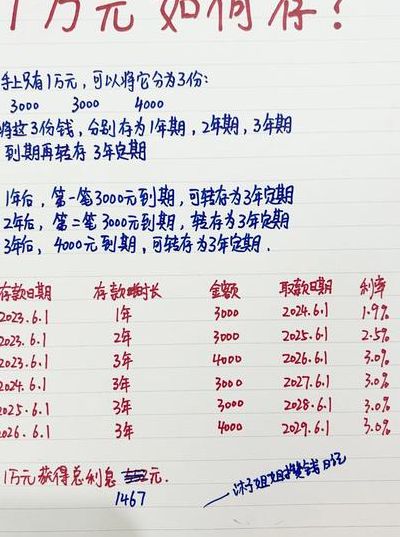 1万元如何存?
手上只有1万元，可以将它分为3份:
3000 3000 4000
将这3份钱，分别存为1年期，2年期，3年期
到期再转存3年定期
1年后，第一笔3000元到期，可转存为3年定期
2年后，第二笔3000元到期，转存为3年定期
3年后，4000元到期，可转存为3年定期.
存款日期 存款时长 金额 取款日期 利率
2023.6.1 1年 3000 2024.6.1 1.9%
2023.6.1 2年 3000 2025.6.1 2.5%
2023.6.1 3年 4000 2026.6.1 3.0%
2024.6.1 3年 3000 2027.6.1 3.0%
2025.6.1 3年 3000 2028.6.1 3.0%
2026.6.1 3年 4000 2029.6.1 3.0%
1万元获得总利息 元.
1467
姐姐攒钱日记